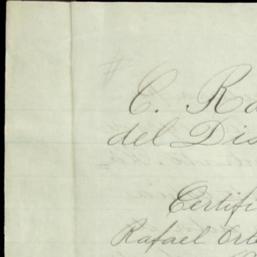 C. Ra
del Dis
Certifi
Rafael Orte